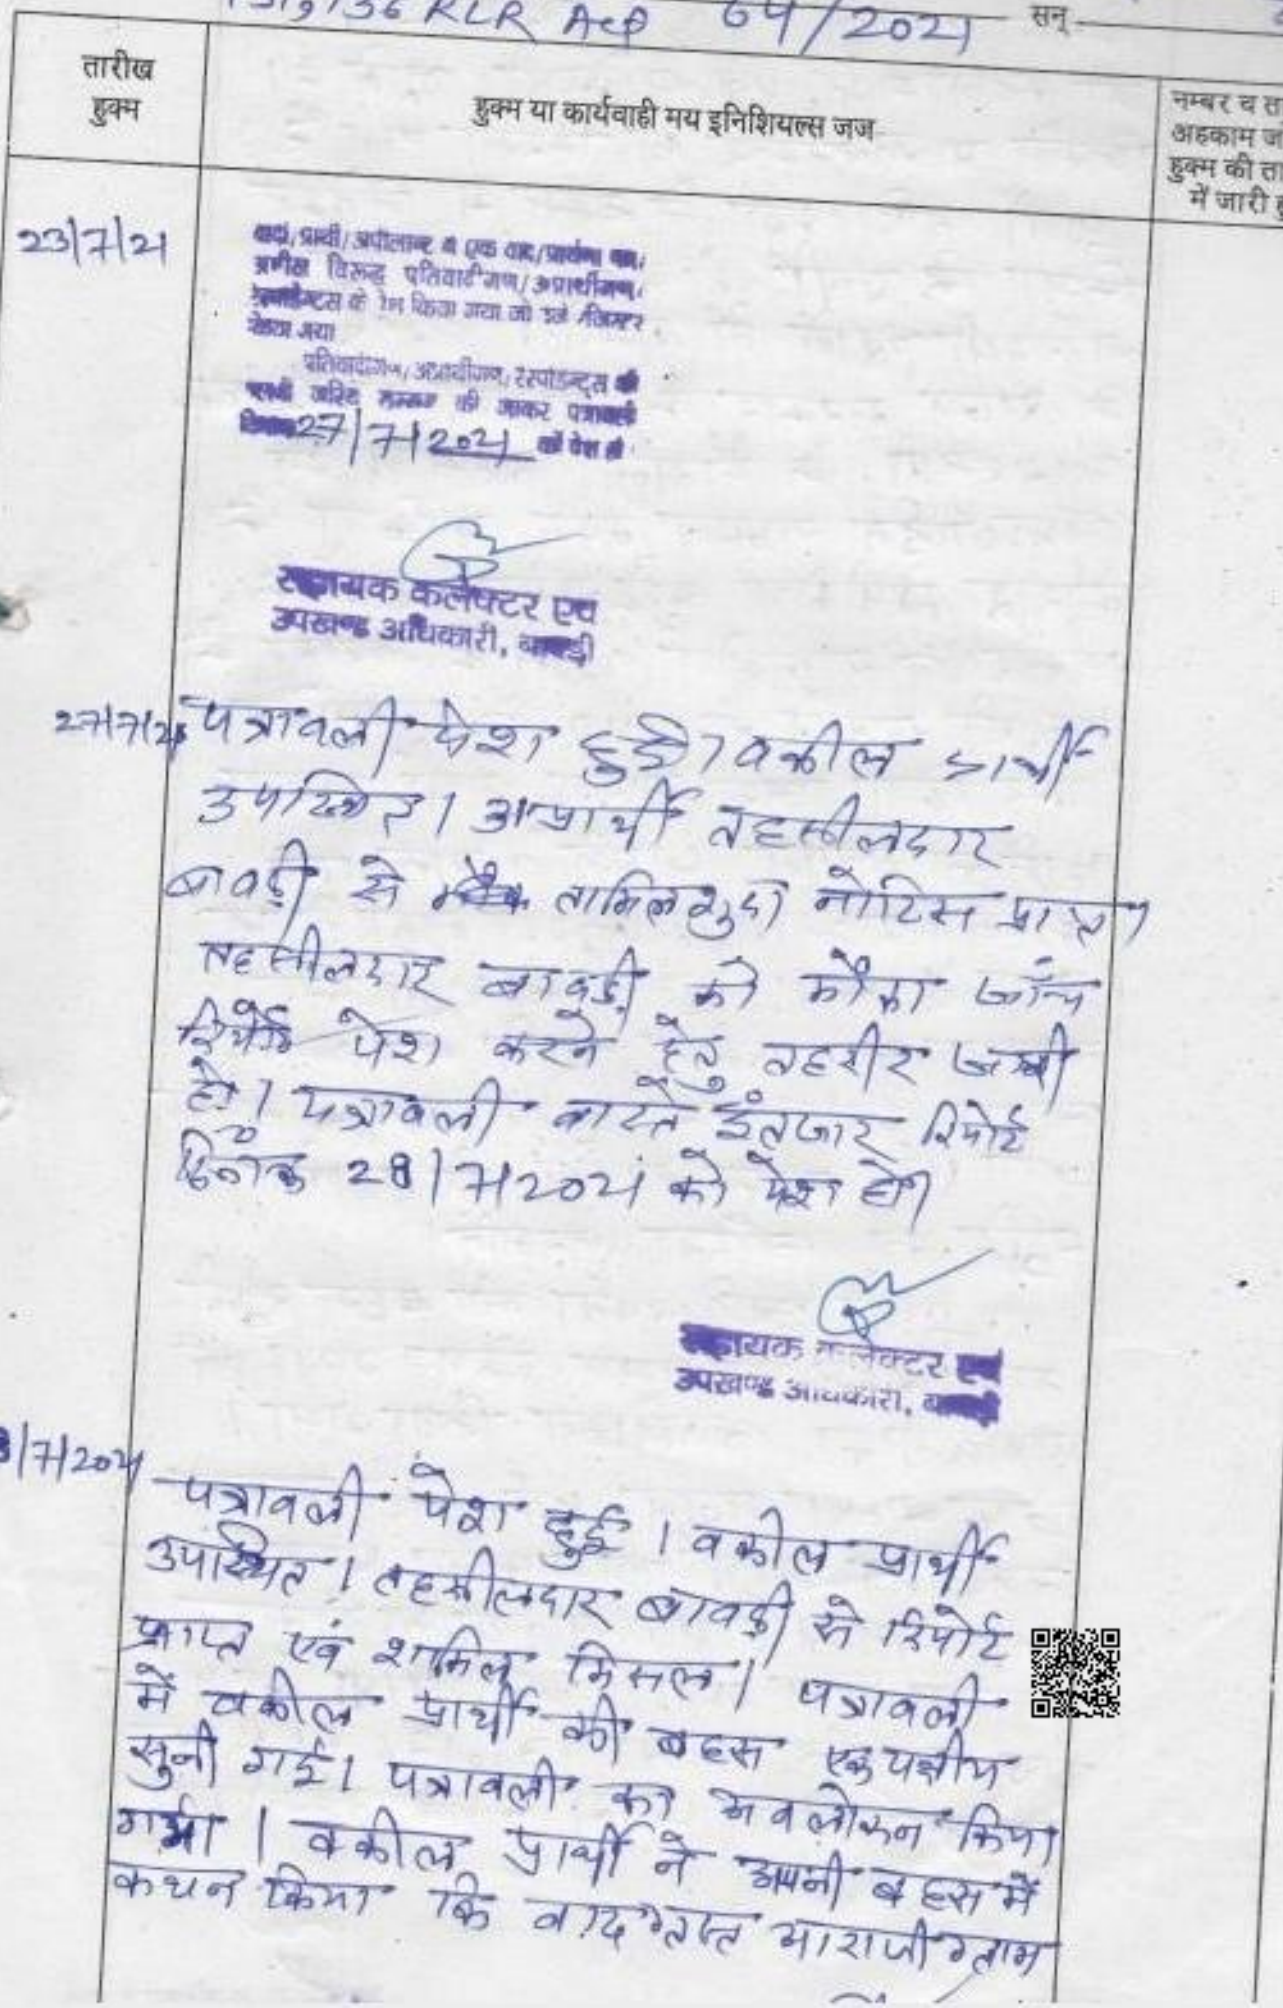 136 RLR Act 64/2021 सन्
तारीख
हुक्म
हुक्म या कार्यवाही मय इनिशियल्स जज
नम्बर व ता
अहकाम ज
हुक्म की ता
में जारी हु
23/7/21
वादी/प्रार्थी/अपीलान्ट ने एक वाद/प्रार्थना पत्र/
अपील विरूद्ध प्रतिवादीगण/अप्रार्थीगण/
के पेश किया गया जो दर्ज रजिस्टर
किया गया
प्रतिवादीगण/अप्रार्थीगण/रेस्पोडेन्ट्स की
तलबी जरिये सम्मन की जाकर पत्रावली
दिनांक 27/7/2021 को पेश हो
सहायक कलेक्टर एवं
उपखण्ड अधिकारी, बावड़ी
27/7/21 पत्रावली पेश हुई। वकील प्रार्थी
उपस्थित। अप्रार्थी तहसीलदार
बावड़ी से तामिलशुदा नोटिस प्राप्त।
तहसीलदार बावड़ी को मौका जाँच
रिपोर्ट पेश करने हेतु तहरीर जारी
हो। पत्रावली वास्ते इंतजार रिपोर्ट
दिनांक 28/7/2021 को पेश हो।
सहायक कलेक्टर एवं
उपखण्ड अधिकारी, बावड़ी
8/7/2021
पत्रावली पेश हुई। वकील प्रार्थी
उपस्थित। तहसीलदार बावड़ी से रिपोर्ट
प्राप्त एवं शामिल मिसल। पत्रावली
में वकील प्रार्थी की बहस एकपक्षीय
सुनी गई। पत्रावली का अवलोकन किया
गया। वकील प्रार्थी ने अपनी बहस में
कथन किया कि वादग्रस्त आराजी ग्राम